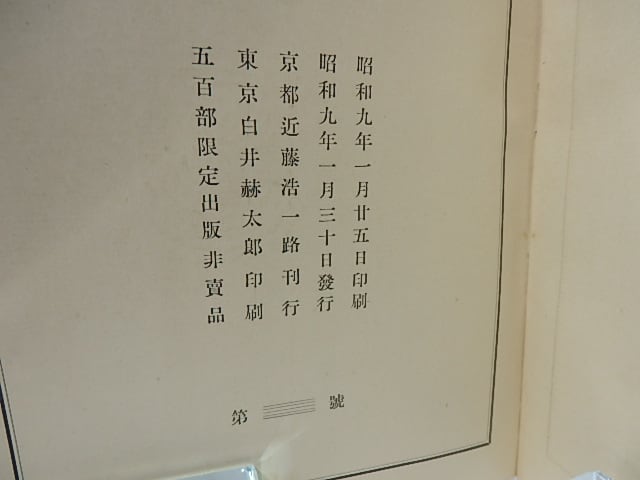 昭和九年一月廿五日印刷
昭和九年一月三十日發行
京都近藤浩一路刊行
東京白井赫太郎印刷
五百部限定出版非賣品
第 號